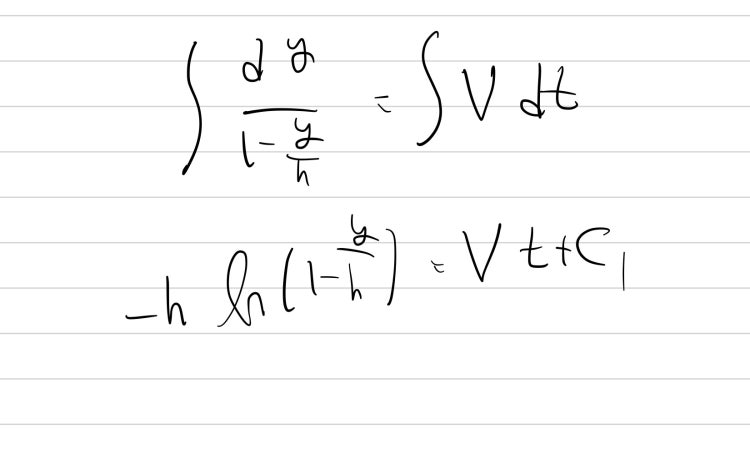 ∫ dy / (1 - y/h) = ∫ V dt
-h ln(1 - y/h) = V t + C₁